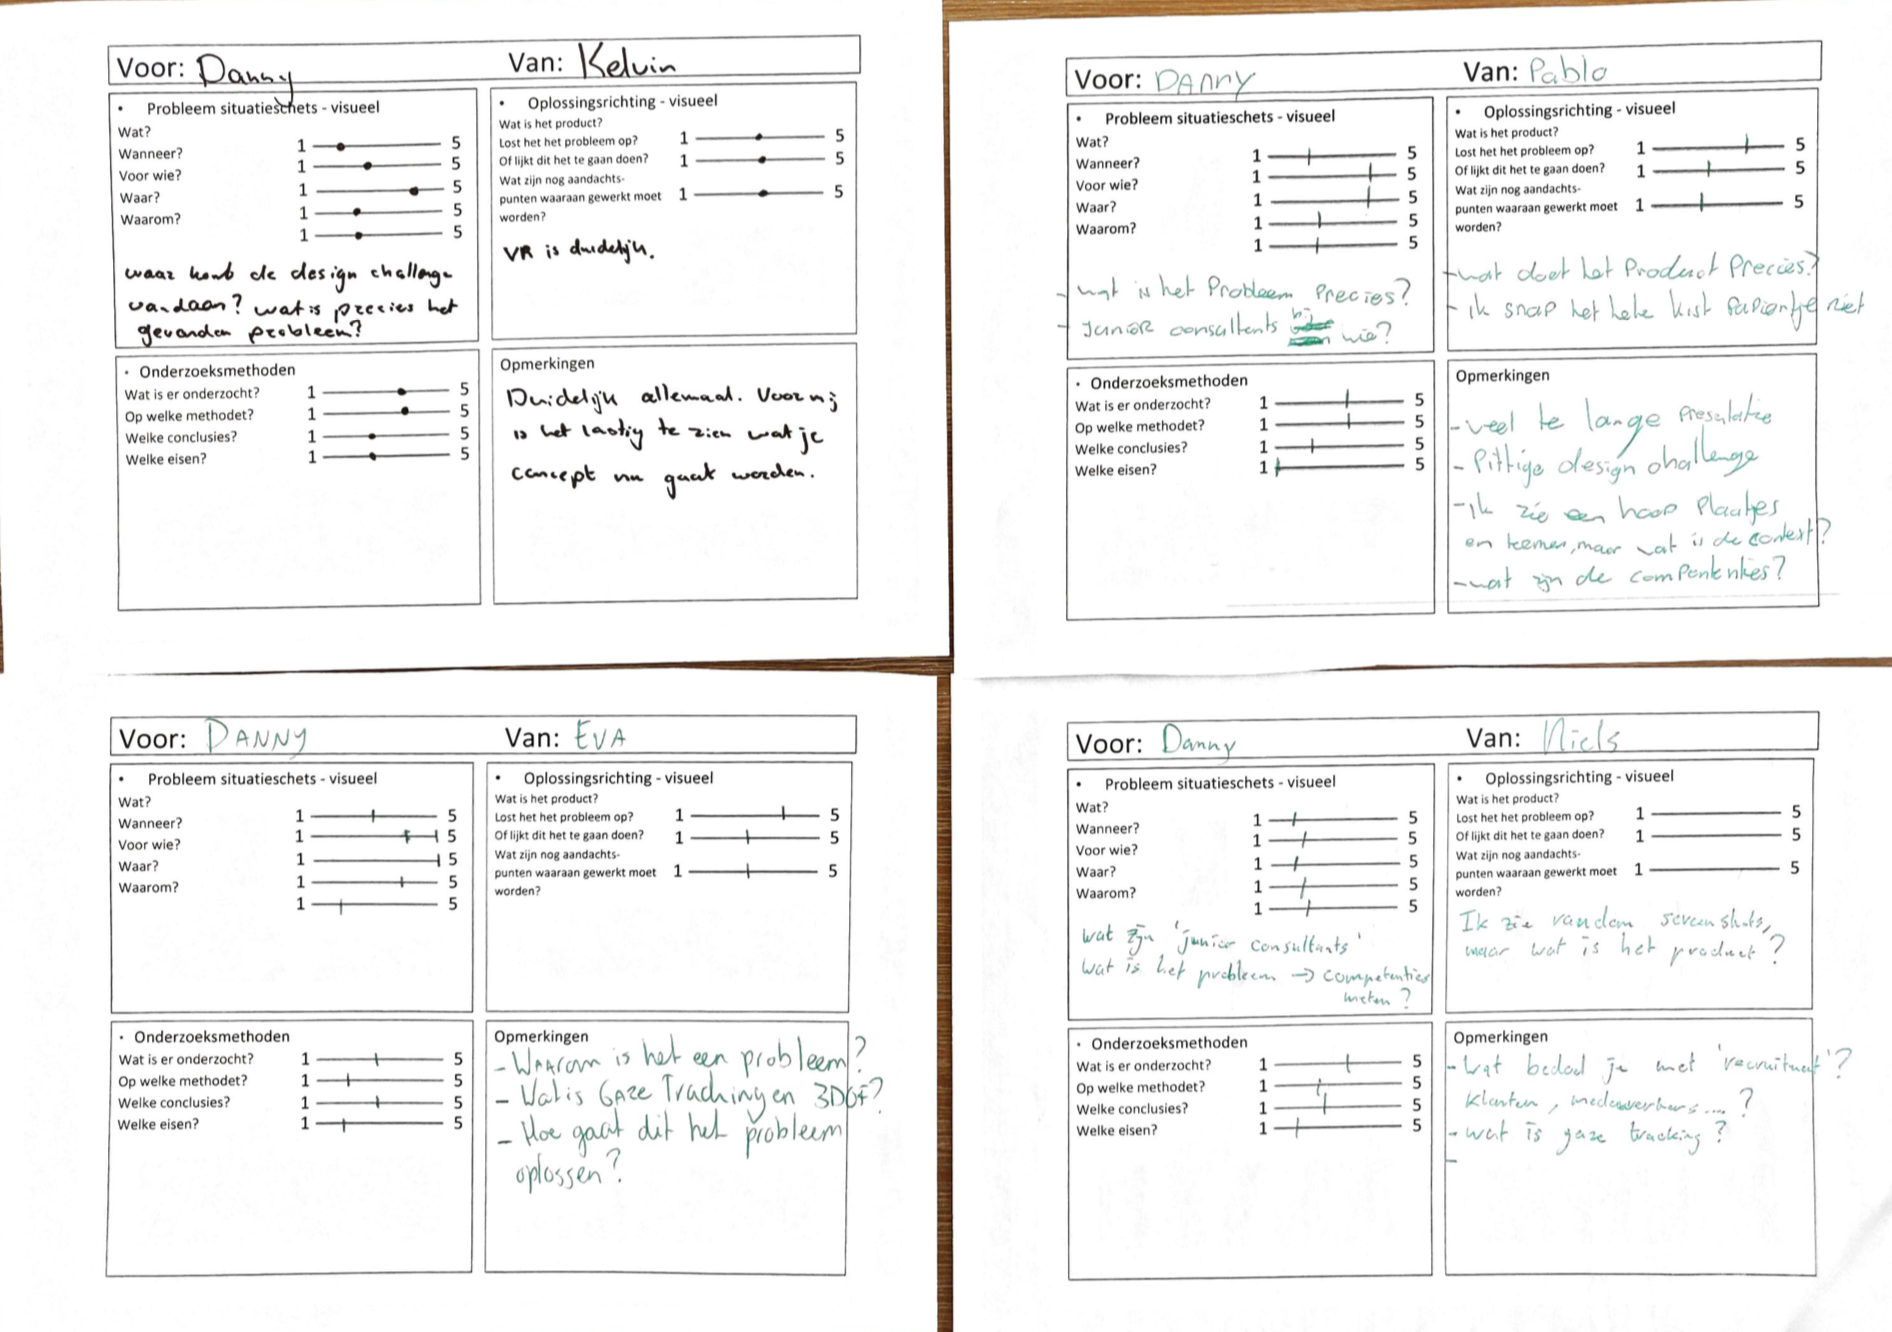 Voor: Danny
Van: Kelvin
• Probleem situatieschets - visueel
Wat?
1 5
Wanneer?
1 5
Voor wie?
1 5
Waar?
1 5
Waarom?
1 5
waar komt de design challenge
vandaan? wat is precies het
gevonden probleem?
• Oplossingsrichting - visueel
Wat is het product?
Lost het het probleem op? 1 5
Of lijkt dit het te gaan doen? 1 5
Wat zijn nog aandachts-
punten waaraan gewerkt moet 1 5
worden?
VR is duidelijk.
• Onderzoeksmethoden
Wat is er onderzocht? 1 5
Op welke methodet? 1 5
Welke conclusies? 1 5
Welke eisen? 1 5
Opmerkingen
Duidelijk allemaal. Voor mij
is het lastig te zien wat je
concept nu gaat worden.
Voor: DANNY
Van: Pablo
• Probleem situatieschets - visueel
Wat?
1 5
Wanneer?
1 5
Voor wie?
1 5
Waar?
1 5
Waarom?
1 5
- wat is het Probleem Precies?
- Junior consultents bij wie?
• Oplossingsrichting - visueel
Wat is het product?
Lost het het probleem op? 1 5
Of lijkt dit het te gaan doen? 1 5
Wat zijn nog aandachts-
punten waaraan gewerkt moet 1 5
worden?
- wat doet het Product Precies?
- ik snap het hele kist niet
• Onderzoeksmethoden
Wat is er onderzocht? 1 5
Op welke methodet? 1 5
Welke conclusies? 1 5
Welke eisen? 1 5
Opmerkingen
- veel te lange
- Pittige design challenge
- ik zie een hoop Plaatjes
en termen, maar wat is de context?
- wat zijn de
Voor: DANNY
Van: EVA
• Probleem situatieschets - visueel
Wat?
1 5
Wanneer?
1 5
Voor wie?
1 5
Waar?
1 5
Waarom?
1 5
• Oplossingsrichting - visueel
Wat is het product?
Lost het het probleem op? 1 5
Of lijkt dit het te gaan doen? 1 5
Wat zijn nog aandachts-
punten waaraan gewerkt moet 1 5
worden?
• Onderzoeksmethoden
Wat is er onderzocht? 1 5
Op welke methodet? 1 5
Welke conclusies? 1 5
Welke eisen? 1 5
Opmerkingen
- Waarom is het een probleem?
- Wat is Gaze Tracking en 3DOF?
- Hoe gaat dit het probleem
oplossen?
Voor: Danny
Van: Niels
• Probleem situatieschets - visueel
Wat?
1 5
Wanneer?
1 5
Voor wie?
1 5
Waar?
1 5
Waarom?
1 5
wat zijn 'junior consultants'
wat is het probleem → competenties
meten?
• Oplossingsrichting - visueel
Wat is het product?
Lost het het probleem op? 1 5
Of lijkt dit het te gaan doen? 1 5
Wat zijn nog aandachts-
punten waaraan gewerkt moet 1 5
worden?
Ik zie random screenshots,
maar wat is het product?
• Onderzoeksmethoden
Wat is er onderzocht? 1 5
Op welke methodet? 1 5
Welke conclusies? 1 5
Welke eisen? 1 5
Opmerkingen
- Wat bedoel je met 'recruitment'?
Klanten, medewerkers...?
- wat is gaze tracking?
-